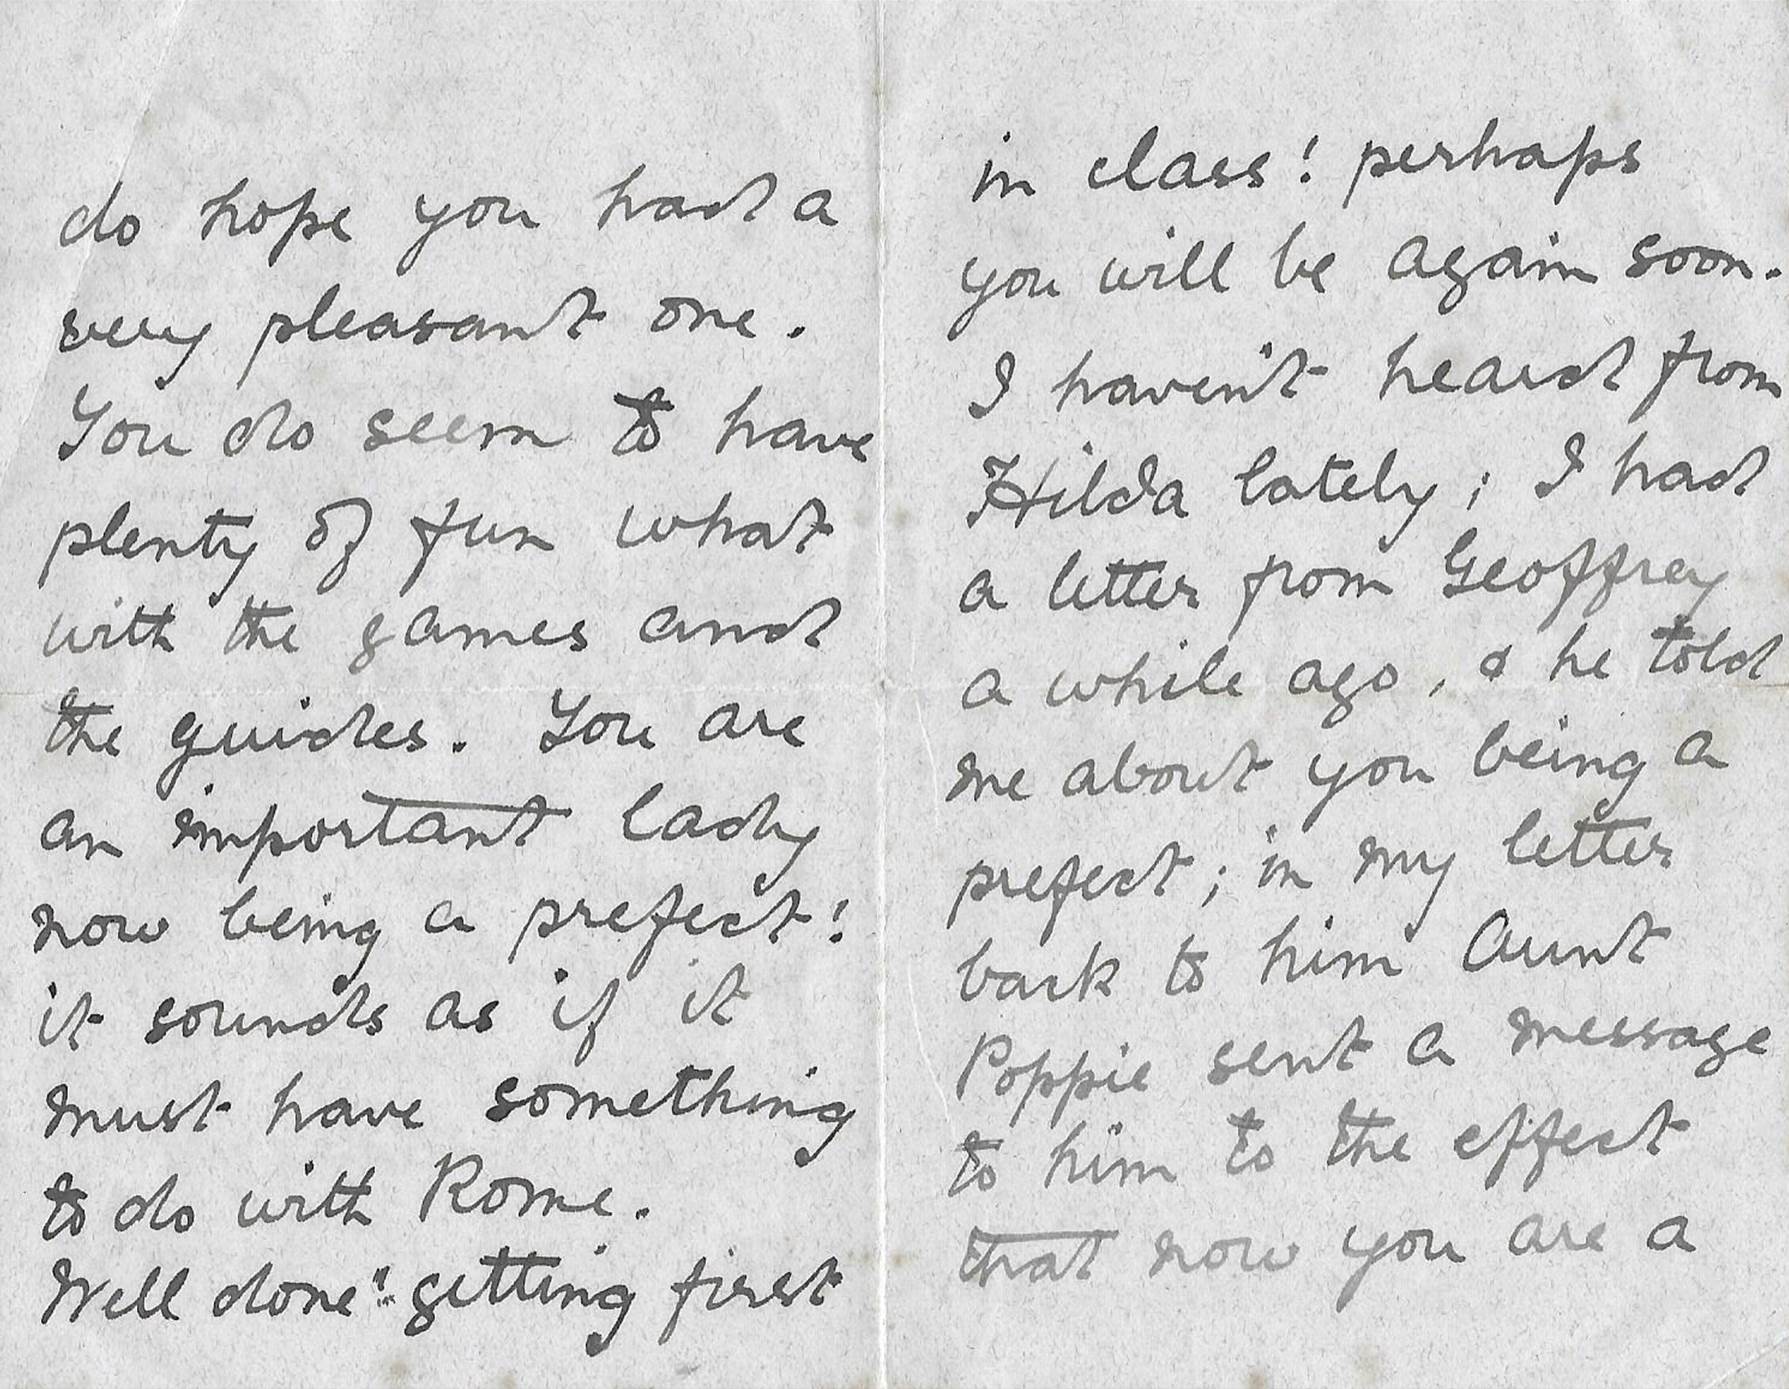 do hope you had a
very pleasant one.
You do seem to have
plenty of fun what
with the games and
the guides. You are
an important lady
now being a prefect!
it sounds as if it
must have something
to do with Rome.
Well done! getting first
in class! perhaps
you will be again soon.
I haven't heard from
Hilda lately; I had
a letter from Geoffrey
a while ago, & he told
me about you being a
prefect; in my letter
back to him Aunt
Poppie sent a message
to him to the effect
that now you are a